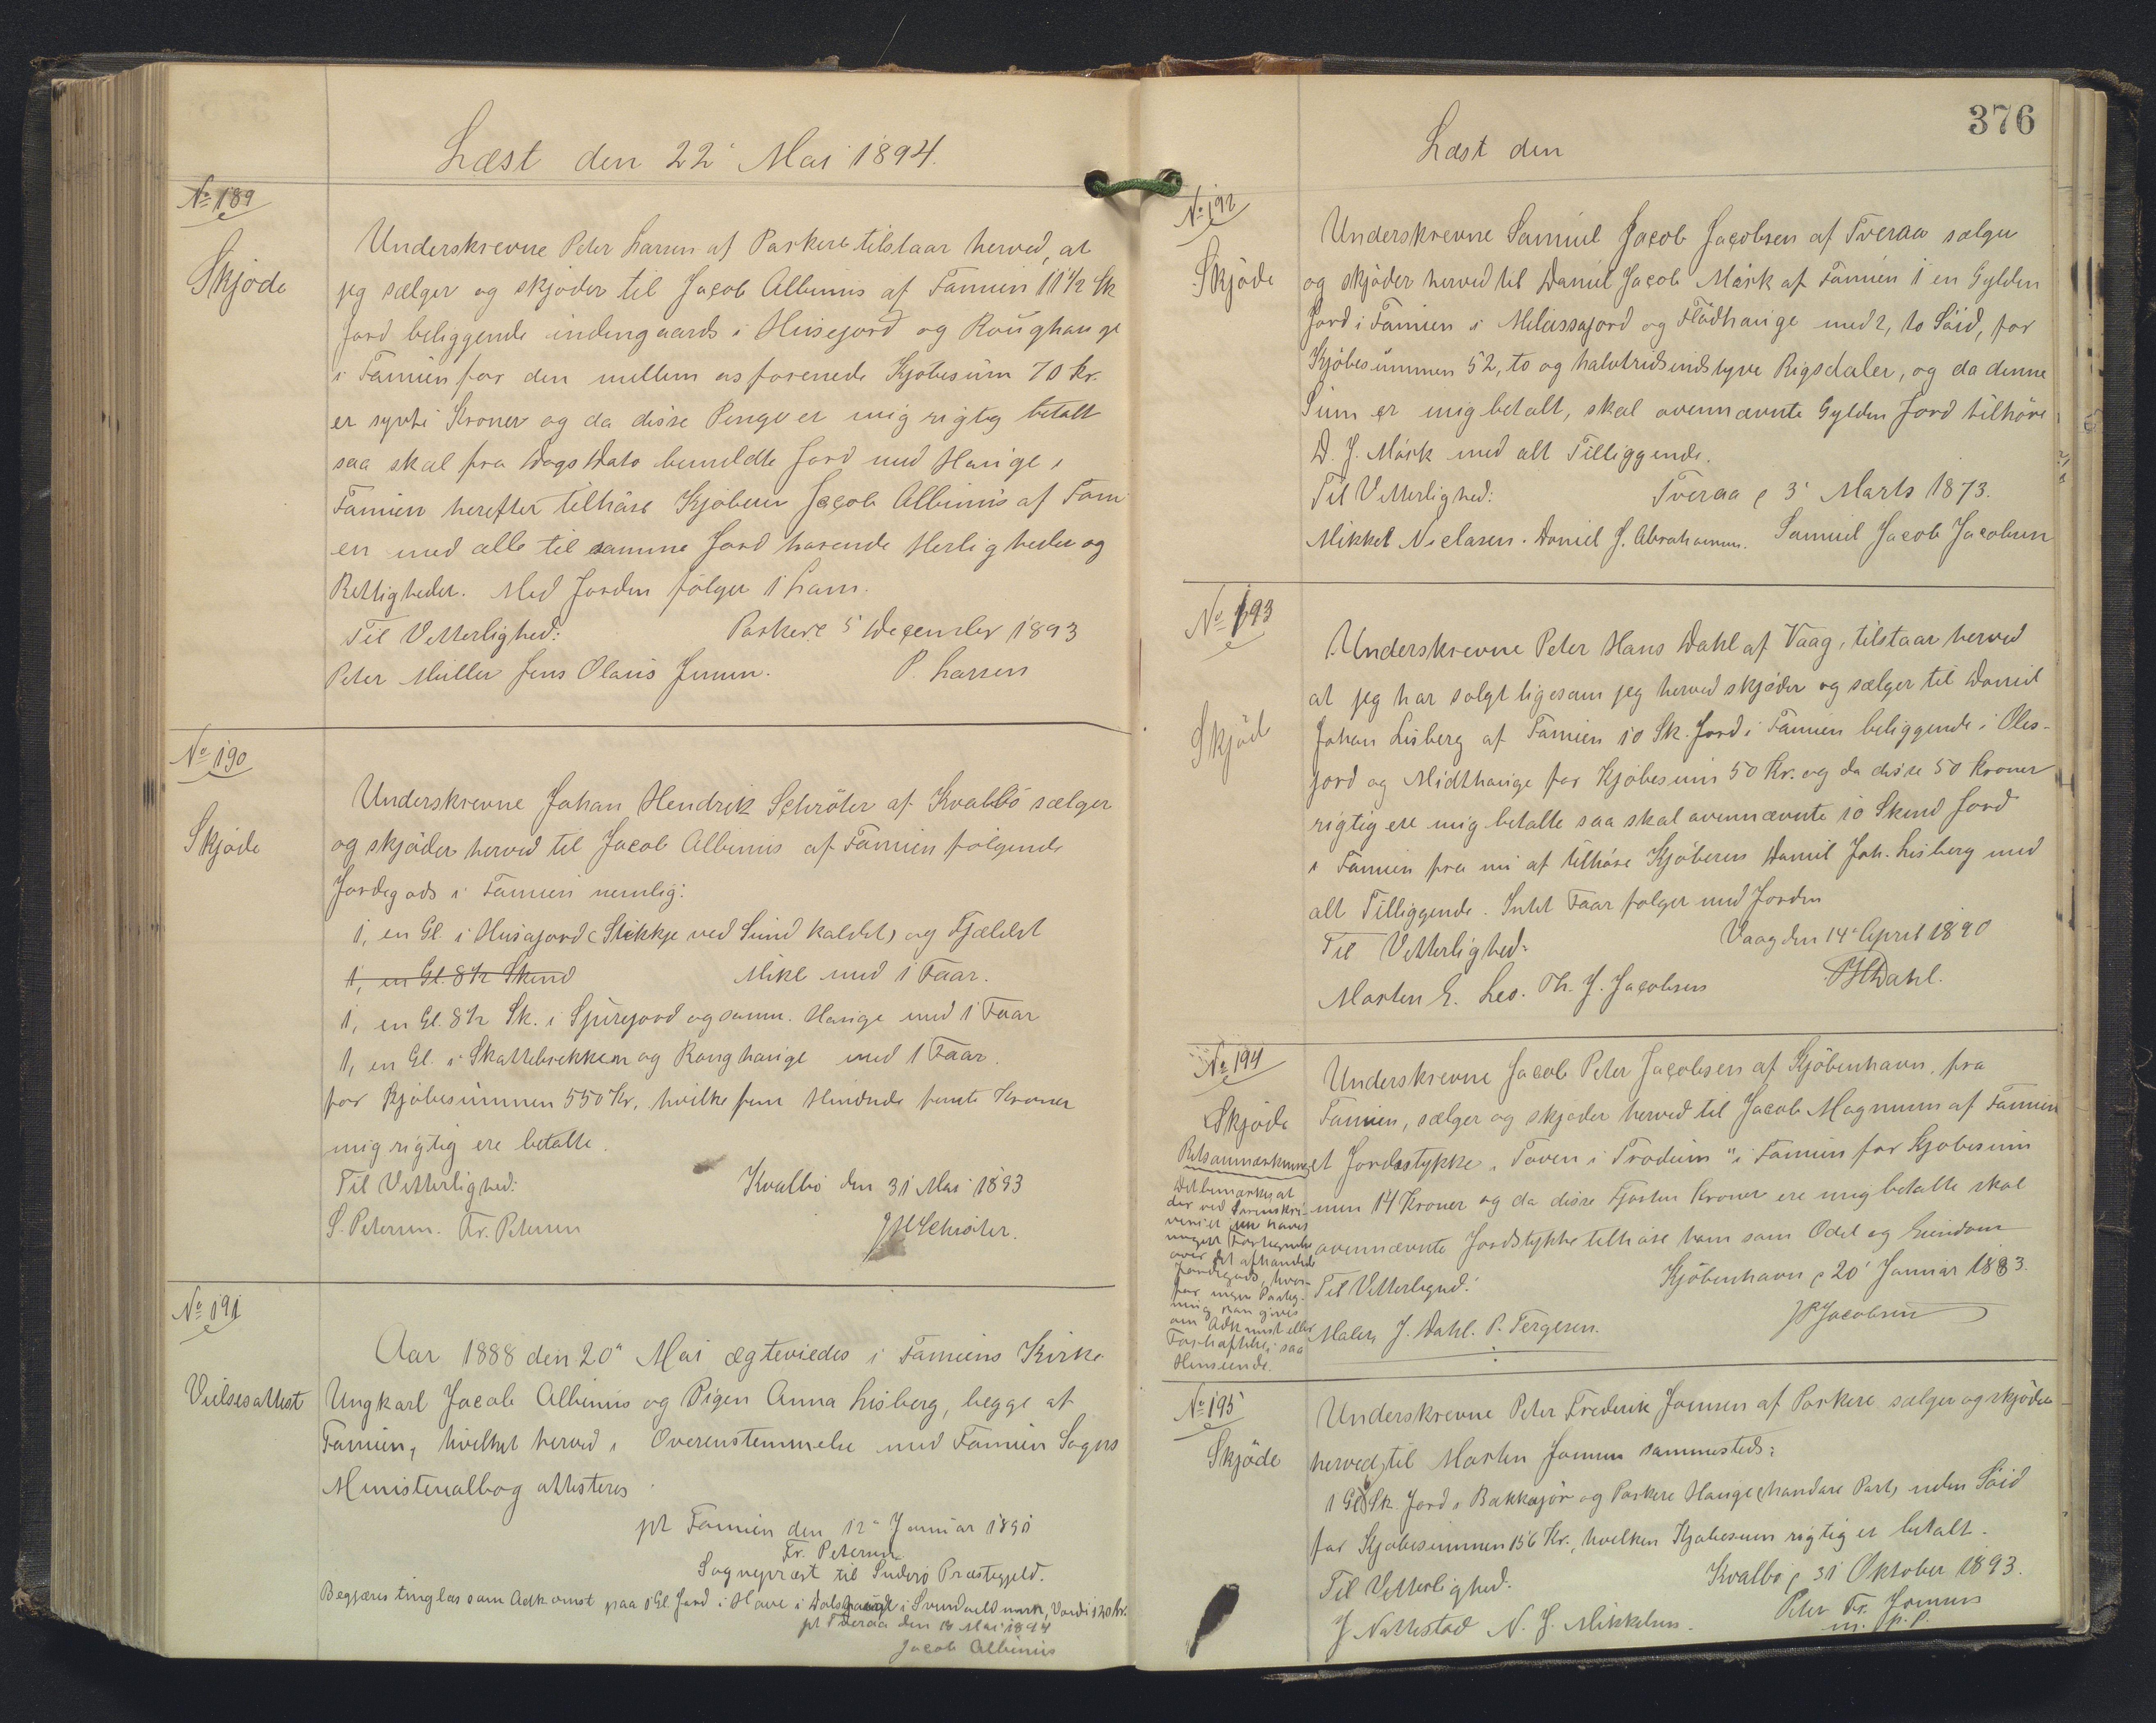 Læst den 22' Mai 1894.
No 189
Skjøde
Underskrevne Peter Larsen af Porkere tilstaar herved, at
jeg sælger og skjøder til Jacob Albinus af Famien 11 1/2 Sk
Jord beliggende indengaards i Husejord og Roughauge
i Famien for den mellem os forenede Kjøbesum 70 Kr.
er syvti Kroner og da disse Penge er mig rigtig betalt
saa skal fra Dags Dato bemeldte Jord med Hauge i
Famien herefter tilhøre Kjøberen Jacob Albinus af Fami
en med alle til samme Jord havende Herligheder og
Rettigheder. Med Jorden følger 1 Lam.
Til Vitterlighed: Porkere 5 December 1893
Peter Müller Jens Olaus Jensen. P. Larsen
No 190
Skjøde
Underskrevne Johan Hendrik Schröter af Kvalbö sælger
og skjøder herved til Jacob Albinus af Famien følgende
Jordegods i Famien nemlig:
1, en Gl. i Husajord (Stikkje ved Sund kaldet) og Fjældet
1, en Gl. 8 1/2 Skind Mikl med 1 Faar.
1, en Gl. 8 1/2 Sk. i Spurejord og samm. Hauge med 1 Faar
1, en Gl. i Skattebrekkem og Ronghauge med 1 Faar.
for Kjøbesummen 550 Kr, hvilke fem Hundrede femti Kroner
mig rigtig ere betalte.
Til Vitterlighed: Kvalbö den 31 Mai 1893
S. Petersen. Fr. Petersen JHSchröter.
No 191
Vielsesattest
Aar 1888 den 20" Mai ægteviedes i Famiens Kirke
Ungkarl Jacob Albinus og Pigen Anna Lisberg, begge af
Famien, hvilket herved i Overenstemmelse med Famien Sogns
Ministerialbog attesteres
pt Famien den 12" Januar 1891
Fr. Petersen
Sognepræst til Suderö Præstegjeld.
Begjæres tinglæs som Adkomst paa 1 Gl Jord i Hove i i mark, Værdi 120 kr.
pt Tveraa den Mai 1894
Jacob Albinus
376
Læst den
No 192
Skjøde
Underskrevne Samuel Jacob Jacobsen af Tveraa sælger
og skjøder herved til Daniel Jacob Mørk af Famien 1 en Gylden
Jord i Famien i Melassajord og Flødhauge med 2, to Söid, for
Kjøbesummen 52, to og halvtredsindstyve Rigsdaler, og da denne
Sum er mig betalt, skal ovennævnte Gylden Jord tilhøre
D. J. Mørk med alt Tilliggende.
Til Vitterlighed: Tveraa p 3' Marts 1873.
Mikkel Niclasen. Daniel J. Abrahamsen. Samuel Jacob Jacobsen
No 193
Skjöd
Underskrevne Peter Hans Dahl af Vaag, tilstaar herved
at jeg har solgt ligesom jeg herved skjøder og sælger til Daniel
Johan Lisberg af Famien 10 Sk. Jord i Famien beliggende i Oles-
jord og Midthauge for Kjøbesum 50 Kr. og da disse 50 Kroner
rigtig ere mig betalte saa skal ovennævnte 10 Skind Jord
i Famien fra nu af tilhøre Kjøberen Daniel Joh. Lisberg med
alt Tilliggende. Intet Faar følger med Jorden
Til Vitterlighed: Vaag den 14' April 1890
Morten E. Leo. Th. J. Jacobsen PHDahl.
No 194
Skjøde
Underskrevne Jacob Peter Jacobsen af Kjöbenhavn, fra
Famien, sælger og skjøder herved til Jacob Magnusen af Famien
et Jordstykke "Toven i Trodum" i Famien for Kjøbesum
men 14 Kroner og da disse Fjorten Kroner ere mig betalte skal
ovennævnte Jordstykke tilhøre ham som Odel og Eiendom
Til Vitterlighed: Kjöbenhavn p 20' Januar 1883.
Malen J. Dahl. P. Tergesen. JPJacobsen
Retsanmærkning
Det bemærkes at
der ved Sorenskri-
veriet ikke haves
nogen Fortegnelse
over det afhændede
Jordegods, hvor-
for ingen Paateg-
ning kan gives
om Adkomst eller
Forhæftelse i saa
Henseende.
No 195
Skjøde
Underskrevne Peter Frederik Joensen af Porkere sælger og skjøder
herved til Morten Joensen sammesteds:
1 Gl 8 Sk. Jord i Bakkajør og Porkere Hauge (handare Part) uden Söid
for Kjøbesummen 156 Kr., hvilken Kjøbesum rigtig er betalt.
Til Vitterlighed. Kvalbö p 31 Oktober 1893.
J Nattestad N. J. Mikkelsen. Peter Fr. Joensen
m. p. P.